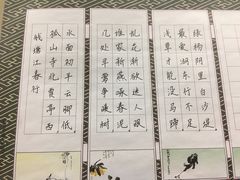 钱塘江春行
孤山寺北贾亭西
水面初平云脚低
几处早莺争暖树
谁家新燕啄春泥
乱花渐欲迷人眼
浅草才能没马蹄
最爱湖东行不足
绿杨阴里白沙堤